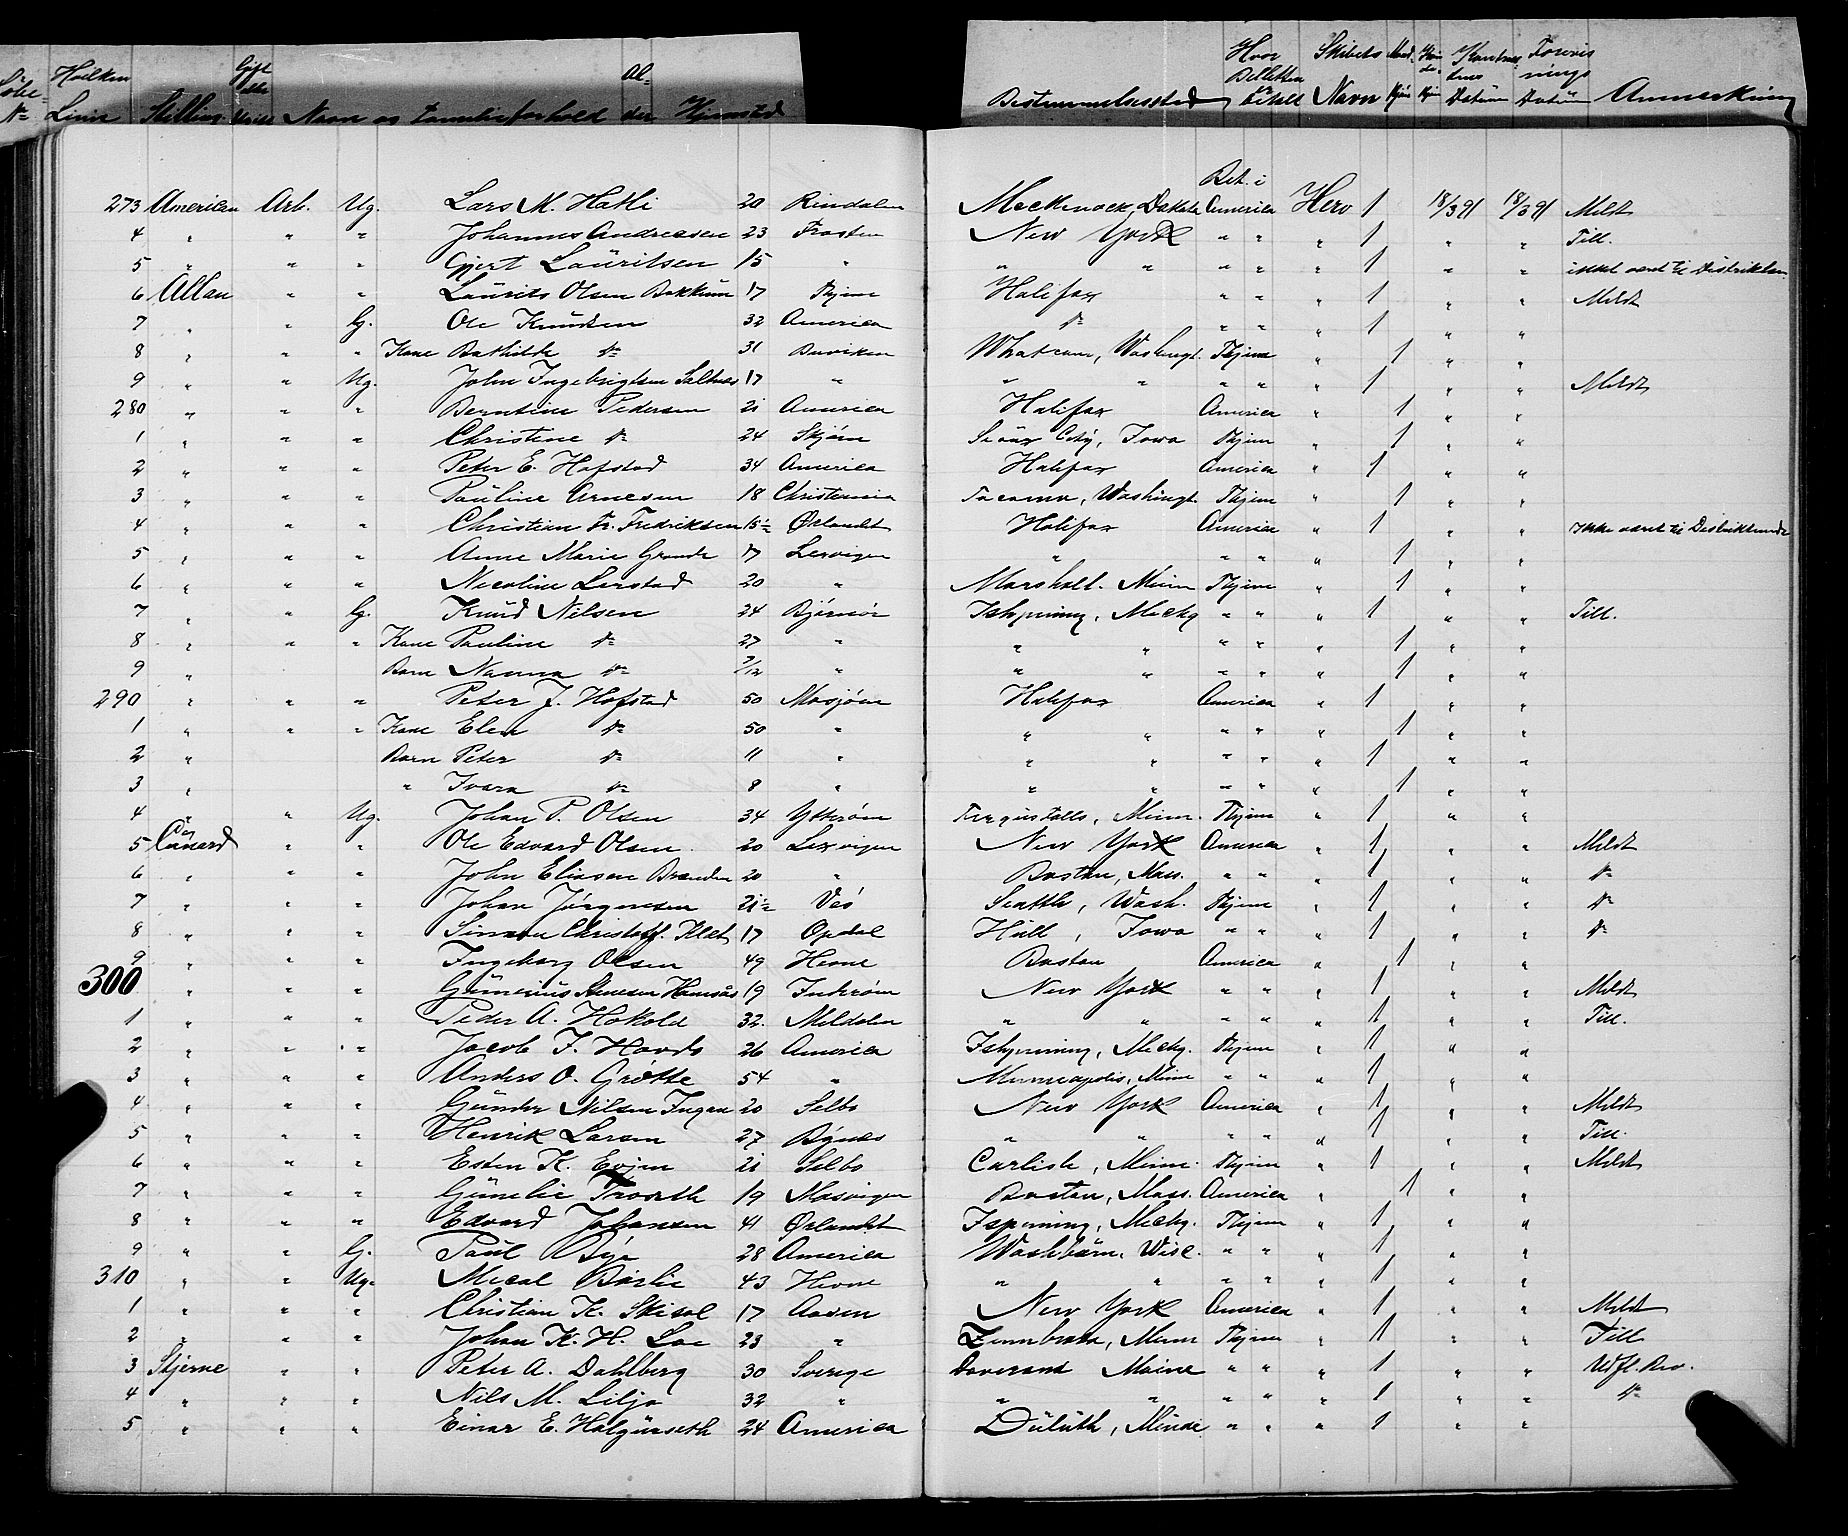 Løbe- No Hvilken Linie Stilling Gift eller Ugift Navn og Familieforhold Al- der Hjemsted Bestemmelsessted Hvor Billetten er betalt Skibets Navn Mand- kjøn Kvin- de- kjøn Kontrac- tens Datum Forevis- nings Datum Anmerkning
273 American Arb. Ug. Lars M. Hatli 20 Rindalen Meckinock, Dakota Bet. i America Hero 1 18/3 91 18/3 91 Meldt
4 " " " Johannes Andreasen 23 Frosten New York " " " 1 " " Till.
5 " " " Gjert Lauritsen 15 " " " " " " 1 " " ikke været til Distriktm
6 Allan " " Laurits Olsen Bakkum 17 Thjem Halifax " " " 1 " " Meldt
7 " " G. Ole Knudsen 32 America do " " " 1 " "
8 " " " Kone Bathilde do 31 Buviken Whatcom, Washingt. Thjem " 1 " "
9 " " Ug. John Ingebrigtsen Saltnes 17 " " " " " " 1 " " Meldt
280 " " " Berntine Pedersen 21 America Halifax America " 1 " "
1 " " " Christine do 24 Skjørn Sioux City, Iowa Thjem " 1 " "
2 " " " Peter E. Hofstad 34 America Halifax America " 1 " "
3 " " " Pauline Arnesen 18 Christiania Tacoma, Washingt. Thjem " 1 " "
4 " " " Christian Fr. Fredriksen 15½ Ørlandet Halifax America " 1 " " Ikke været til Distriktsmode
5 " " " Anne Marie Grande 17 Lexvigen " " " " 1 " "
6 " " " Nicoline Lerstad 20 " Marshall. Minn Thjem " 1 " "
7 " " G. Knud Nilsen 24 Bjørnør Ishpeming, Michg " " " 1 " " Till.
8 " " " Kone Pauline do 27 " " " " " " 1 " "
9 " Barn Nanna do /12 " " " " " " 1 " "
290 " " " Peter J. Hofstad 50 Mosjøen Halifax America " 1 " "
1 " " " Kone Elen do 50 " " " " " " 1 " "
2 " Barn Peter do 11 " " " " " " 1 " "
3 " " Ivara do 8 " " " " " " 1 " "
4 " " Ug. Johan P. Olsen 34 Ytterøen Fergusfalls, Minn. Thjem " 1 " "
5 Cunard " " Ole Edvard Olsen 20 Lexvigen New York America " 1 " " Meldt
6 " " " John Eliasen Brænden 20 " Boston, Mass. " " " 1 " " do
7 " " " Johan Jørgensen 21½ Veø Seattle, Wash. Thjem " 1 " " do
8 " " " Simon Christoff. Klet 17 Opdal Hull, Iowa " " " 1 " " do
9 " " " Ingeborg Olsen 49 Hevne Boston America " 1 " "
300 " " " Gunerius Arnesen Hamsås 19 Inderøen New York " " " 1 " " Meldt
1 " " " Peder A. Hokold 32. Meldalen " " " " " 1 " " Till.
2 " " " Jacob I. Hovds 26 America Ishpeming, Michg. Thjem " 1 " "
3 " " " Anders O. Grøtte 54 " Minneapolis, Minn " " " 1 " "
4 " " " Gunder Nilsen Fugan 20 Selbo New York America " 1 " " Meldt
5 " " " Henrik Larsen 27 Bynes " " " " " 1 " " Till.
6 " " " Esten K. Evjen 21 Selbo Carlisle, Minn. Thjem " 1 " " Meldt
7 " " " Gunelie Troseth 19 Mosvigen Boston, Mass. America " 1 " "
8 " " " Edvard Johansen 41 Ørlandet Ispeming, Michg. Thjem " 1 " "
9 " " G. Paul Bye 28 America Washburn, Wisc. " " " 1 " "
310 " " Ug. Mical Børlie 43 Hevne " " " " " 1 " "
1 " " " Christian K. Skisal 17 Aasen New York America " 1 " " Meldt
2 " " " Johan K. H. Loe 23 " Zumbrota, Minn Thjem " 1 " " Till
3 Stjerne " " Peter A. Dahlberg 30 Sverige Maine " " " 1 " " Utfl. Bev.
4 " " " Nils M. Lilja 32 " " " " " " 1 " " do
5 " " " Einar E. Halgunseth 24 America Duluth, Minne " " " 1 " "